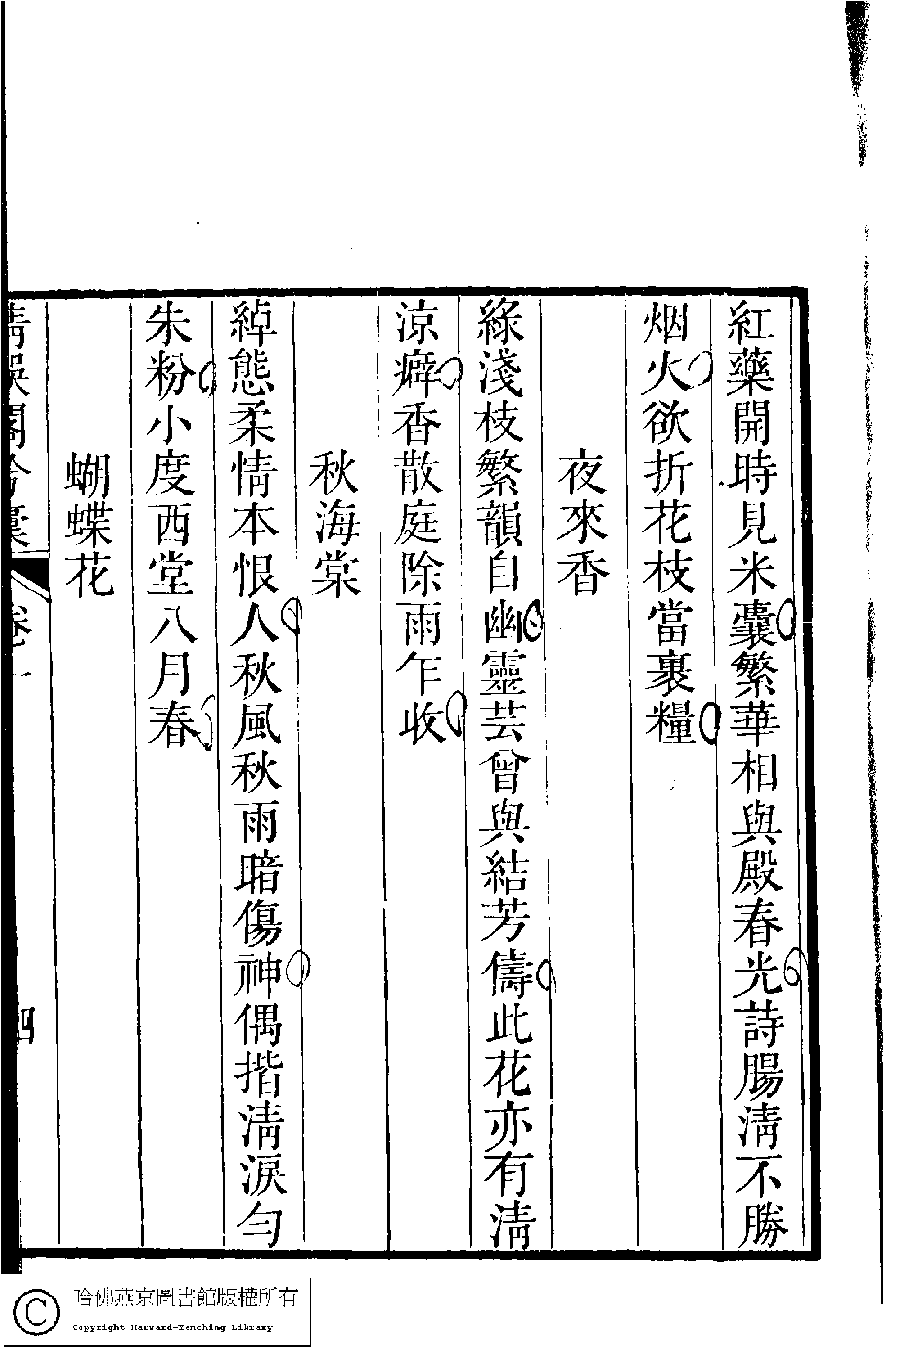 紅藥開時見米囊繁華相與殿春光詩腸淸不勝
烟火欲折花枝當裹糧
夜來香
綠淺枝繁韻自幽靈芸曾與結芳儔此花亦有淸
涼癖香散庭除雨乍收
秋海棠
綽態柔情本恨人秋風秋雨暗傷神偶揩淸淚勻
朱粉小度西堂八月春
蝴蝶花
哈佛燕京圖書館版權所有
Copyright Harvard-Yenching Library